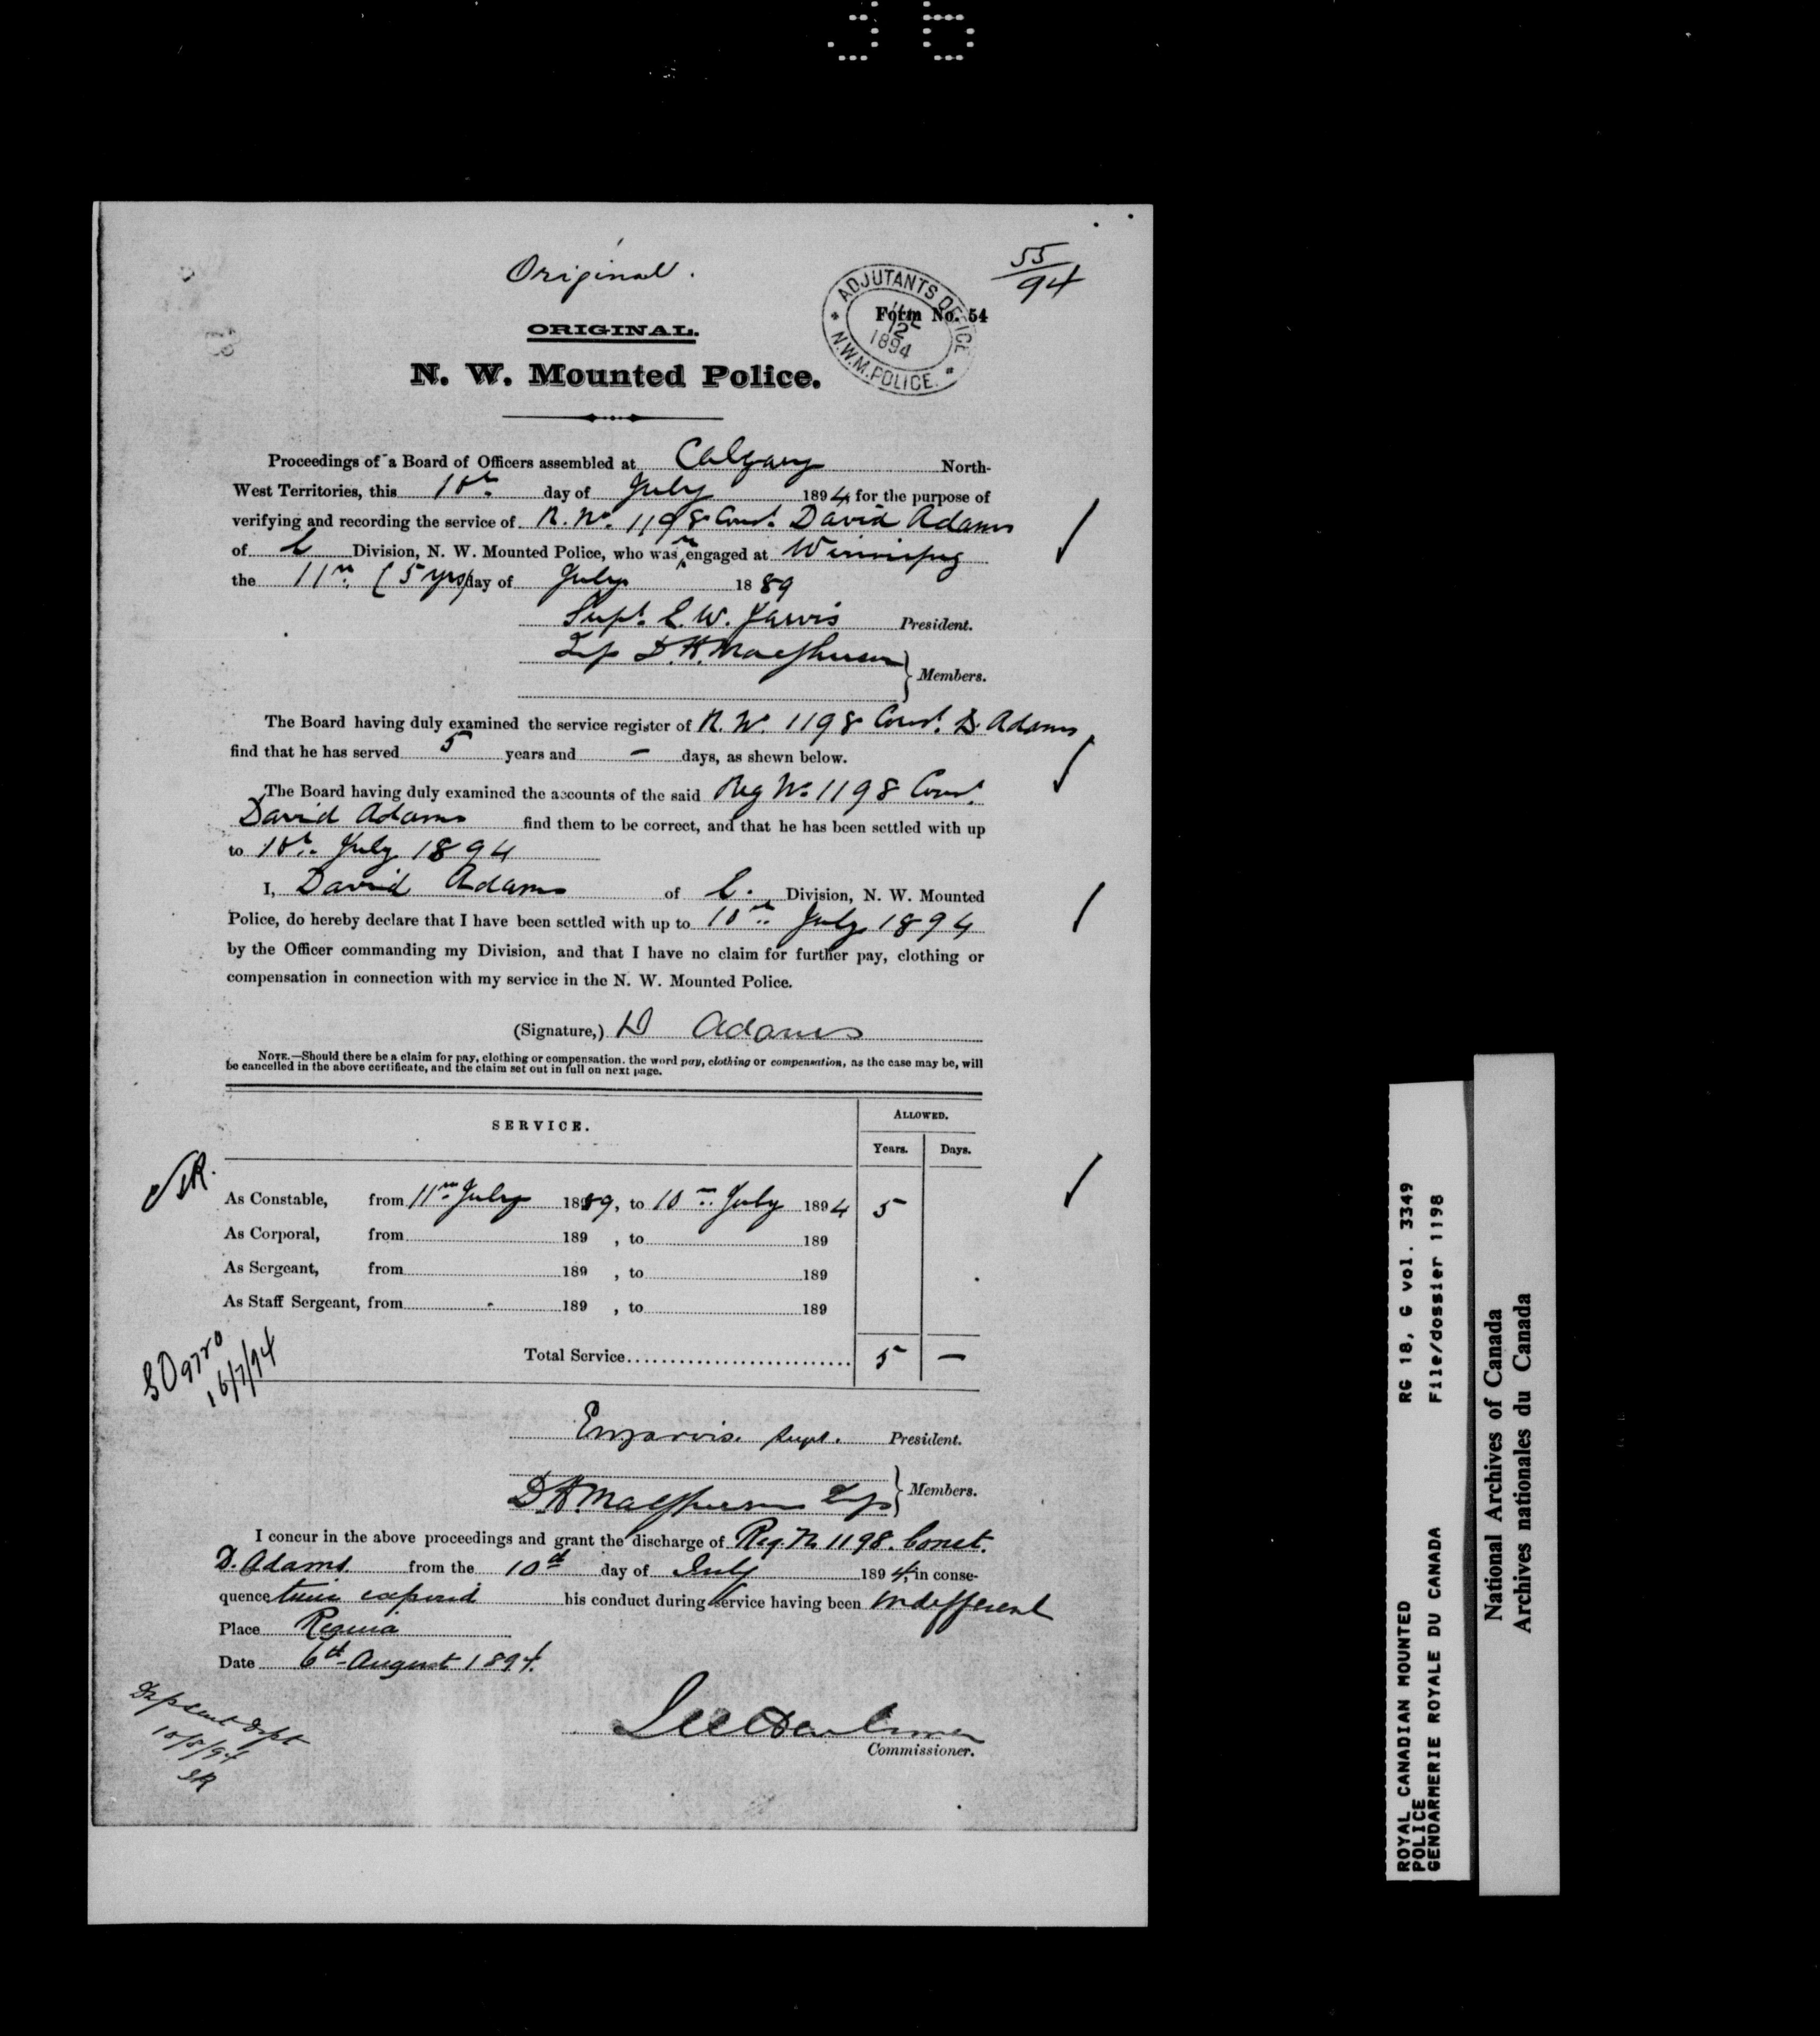 Original.
55
94
ADJUTANTS OFFICE
N.W.M. POLICE.
JUL
12
1894
Form No. 54
ORIGINAL.
N. W. Mounted Police.
Proceedings of a Board of Officers assembled at Calgary North-
West Territories, this 10th day of July 1894, for the purpose of
verifying and recording the service of R. No. 1198 Const. David Adams
of Division, N. W. Mounted Police, who was engaged at Winnipeg
the 11th (5 yrs) day of July 1889
Supt. E. W. Jarvis President.
Insp D. H. Macpherson
Members.
The Board having duly examined the service register of R. No. 1198 Const. D Adams,
find that he has served 5 years and – days, as shewn below.
The Board having duly examined the accounts of the said Reg No 1198 Const.
David Adams find them to be correct, and that he has been settled with up
to 10th July 1894
I, David Adams of Division, N. W. Mounted
Police, do hereby declare that I have been settled with up to 10th July 1894
by the Officer commanding my Division, and that I have no claim for further pay, clothing or
compensation in connection with my service in the N. W. Mounted Police.
(Signature,) D Adams
NOTE.—Should there be a claim for pay, clothing or compensation, the word pay, clothing or compensation, as the case may be, will
be cancelled in the above certificate, and the claim set out in full on next page.
SERVICE.
ALLOWED.
Years. Days.
As Constable, from 11th July 1889, to 10th July 1894 5
As Corporal, from 189 , to 189
As Sergeant, from 189 , to 189
As Staff Sergeant, from 189 , to 189
16/7/94
Total Service 5 –
EWJarvis. Supt. President.
D H Macpherson Insp
Members.
I concur in the above proceedings and grant the discharge of Reg. No 1198. Const.
D. Adams from the 10th day of July 1894, in conse-
quence time expired his conduct during service having been Indifferent
Place Regina
Date 6th August 1894.
Dup sent Dept
10/8/94
Commissioner.
ROYAL CANADIAN MOUNTED RG 18, G vol. 3349
POLICE
GENDARMERIE ROYALE DU CANADA File/dossier 1198
National Archives of Canada
Archives nationales du Canada